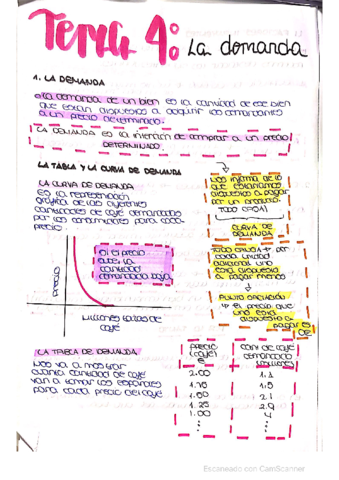 Tema 4: La demanda
1. LA DEMANDA
La demanda de un bien es la cantidad de ese bien
que están dispuestos a adquirir los demandantes
a un precio determinado.
LA DEMANDA ES la intención de comprar a un precio
DETERMINADO.
LA TABLA Y LA CURVA DE DEMANDA
LA CURVA DE DEMANDA
Es la representación
gráfica de las
cantidades de café demandadas
por los consumidores para cada
precio.
Si el precio
sube, la
cantidad
demandada baja
precio
Millones tazas de
café
Nos informa de lo
que estaríamos
dispuestos a pagar
por un producto.
CURVA DE
DEMANDA
por
cada unidad
adicional uno
está dispuesto
a pagar menos
PUNTO
el precio que
uno está
dispuesto a
pagar
LA TABLA DE DEMANDA
Nos va a mostrar
cuanta cantidad de café
van a tomar los españoles
para cada precio del café
PRECIO
(café)
€
2.00
1.75
1.50
1.25
1.00
Cant de café
demandado
1.1
1.5
2.1
2.9
4
Escaneado con CamScanner